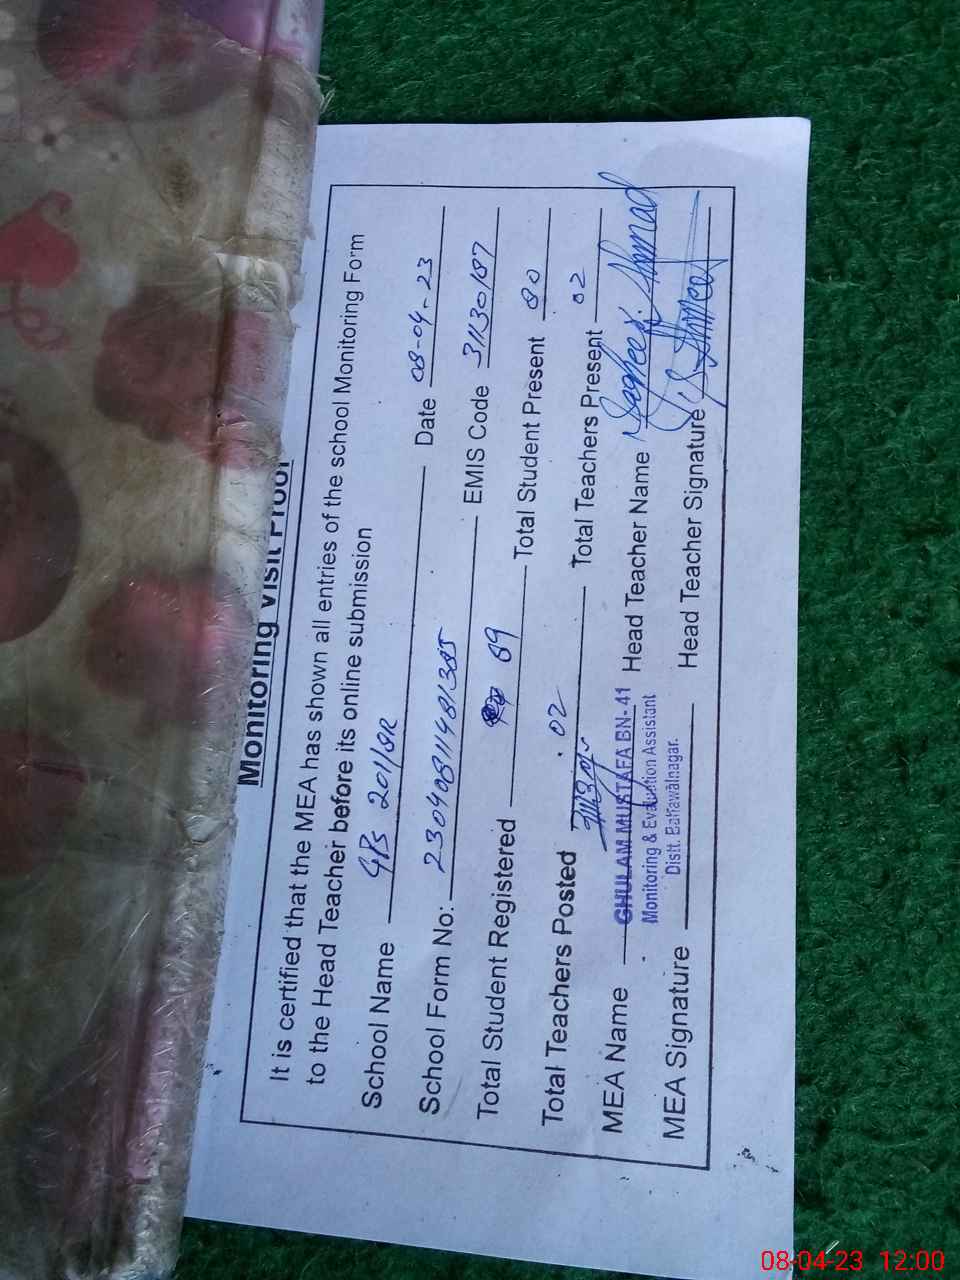 Monitoring Visit Proof
It is certified that the MEA has shown all entries of the school Monitoring Form
to the Head Teacher before its online submission
School Name GPS 201/8R Date 08-04-23
School Form No: 23040811481385 EMIS Code 31130187
Total Student Registered 89 Total Student Present 80
Total Teachers Posted 02 Total Teachers Present 02
MEA Name GHULAM MUSTAFA BN-41 Head Teacher Name Sagheer Ahmad
Monitoring & Evaluation Assistant
Distt. Bahawalnagar.
MEA Signature Head Teacher Signature S. Ahmed
08-04-23 12:00